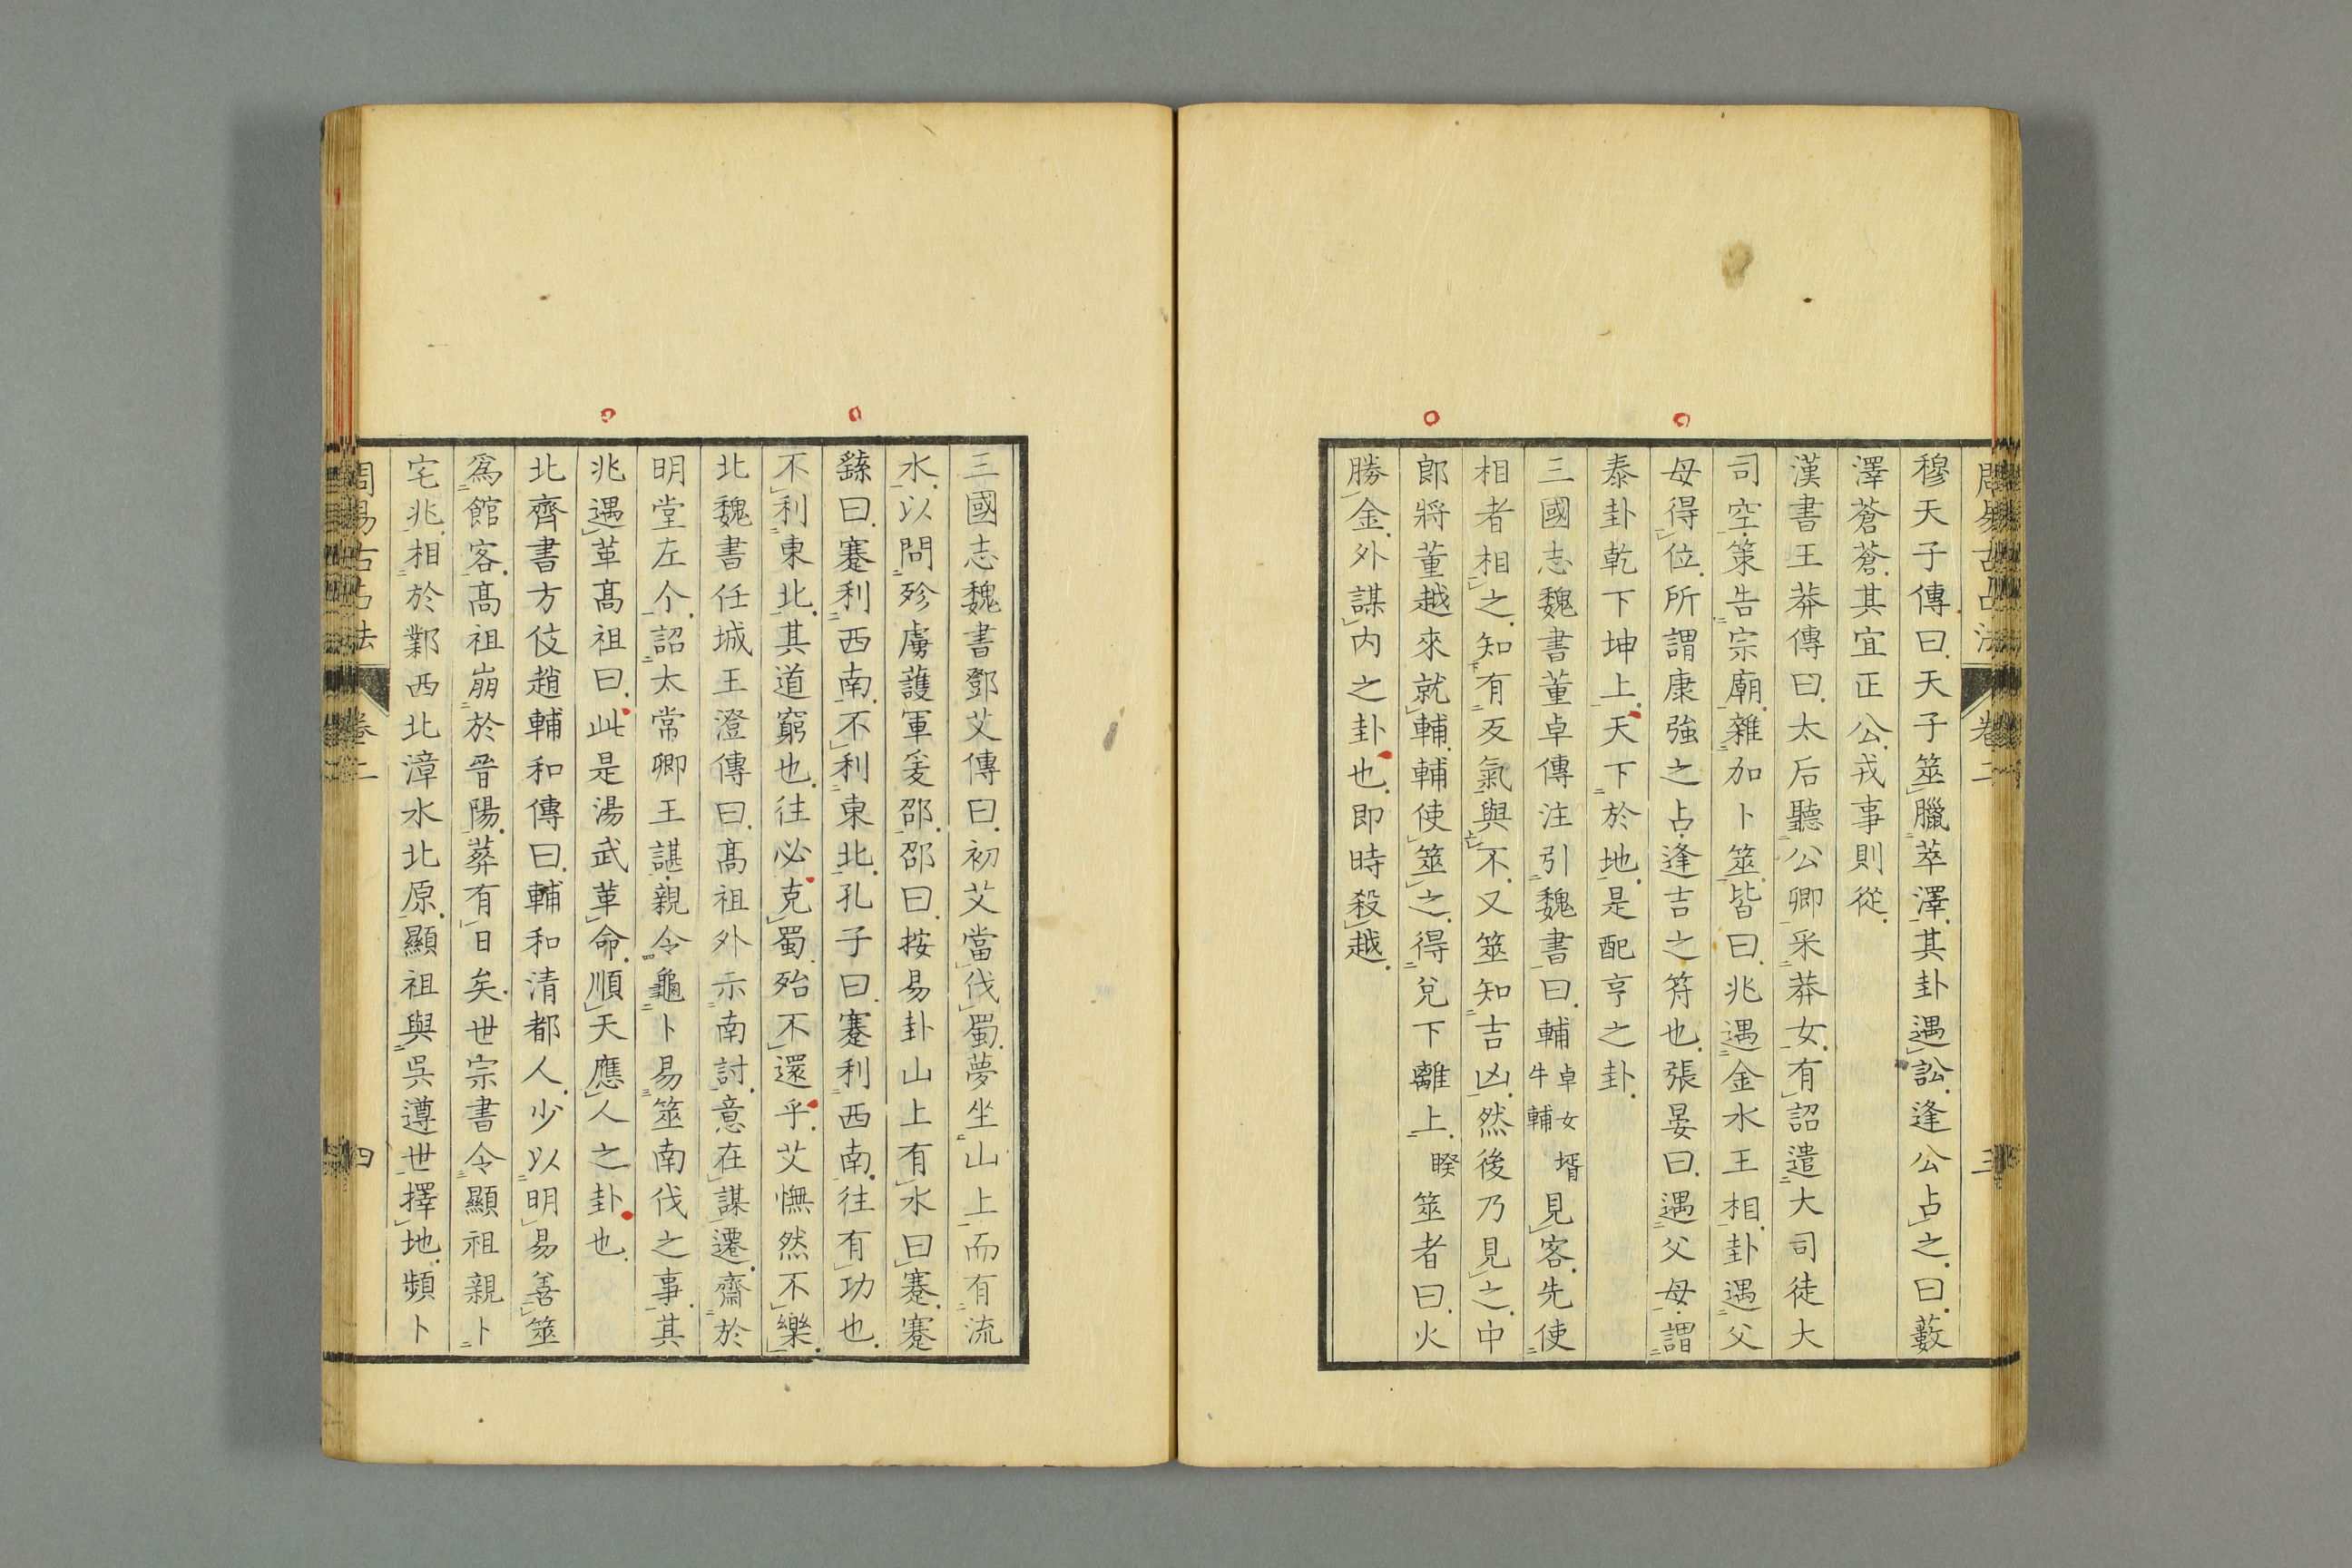 周易古占法 卷二 三
穆天子傳曰天子筮臘萃澤其卦遇訟逢公占之曰藪
澤蒼蒼其宜正公戎事則從
漢書王莽傳曰太后聽公卿采莽女有詔遣大司徒大
司空策告宗廟雜加卜筮皆曰兆遇金水王相卦遇父
母得位所謂康強之占逢吉之符也張晏曰遇父母謂
泰卦乾下坤上天下於地是配亨之卦
三國志魏書董卓傳注引魏書曰輔卓女壻牛輔見客先使
相者相之知有反氣與不又筮知吉凶然後乃見之中
郎將董越來就輔輔使筮之得兌下離上睽筮者曰火
勝金外謀內之卦也即時殺越
三國志魏書鄧艾傳曰初艾當伐蜀夢坐山上而有流
水以問殄虜護軍爰邵邵曰按易卦山上有水曰蹇蹇
繇曰蹇利西南不利東北孔子曰蹇利西南往有功也
不利東北其道窮也往必克蜀殆不還乎艾憮然不樂
北魏書任城王澄傳曰髙祖外示南討意在謀遷齋於
明堂左个詔太常卿王諶親令龜卜易筮南伐之事其
兆遇革髙祖曰此是湯武革命順天應人之卦也
北齊書方伎趙輔和傳曰輔和清都人少以明易善筮
爲館客髙祖崩於晉陽葬有日矣世宗書令顯祖親卜
宅兆相於鄴西北漳水北原顯祖與吳遵世擇地頻卜
周易古占法 卷二 四